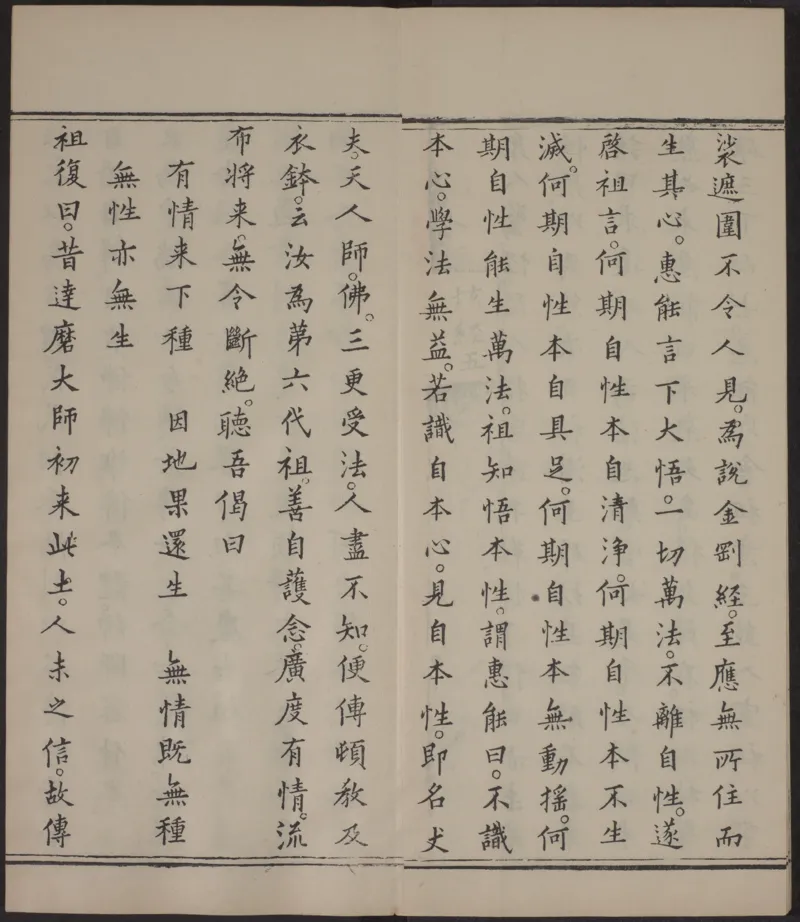 裟遮圍不令人見。為說金剛經。至應無所住而
生其心。惠能言下大悟。一切萬法。不離自性。遂
啓祖言。何期自性本自清淨。何期自性本不生
滅。何期自性本自具足。何期自性本無動搖。何
期自性能生萬法。祖知悟本性。謂惠能曰。不識
本心。學法無益。若識自本心。見自本性。即名丈
夫。天人師。佛。三更受法。人盡不知。便傳頓教及
衣鉢。云汝為第六代祖。善自護念。廣度有情。流
布將来。無令斷絕。聽吾偈曰
有情来下種　因地果還生　無情既無種
無性亦無生
祖復曰。昔達磨大師初来此土。人未之信。故傳